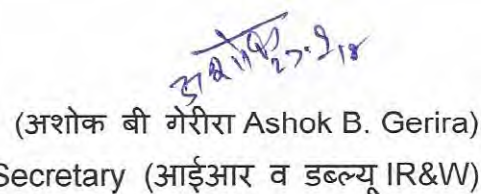 अशोक
27.9.18
(अशोक बी गेरीरा Ashok B. Gerira)
Secretary (आईआर व डब्ल्यू IR&W)